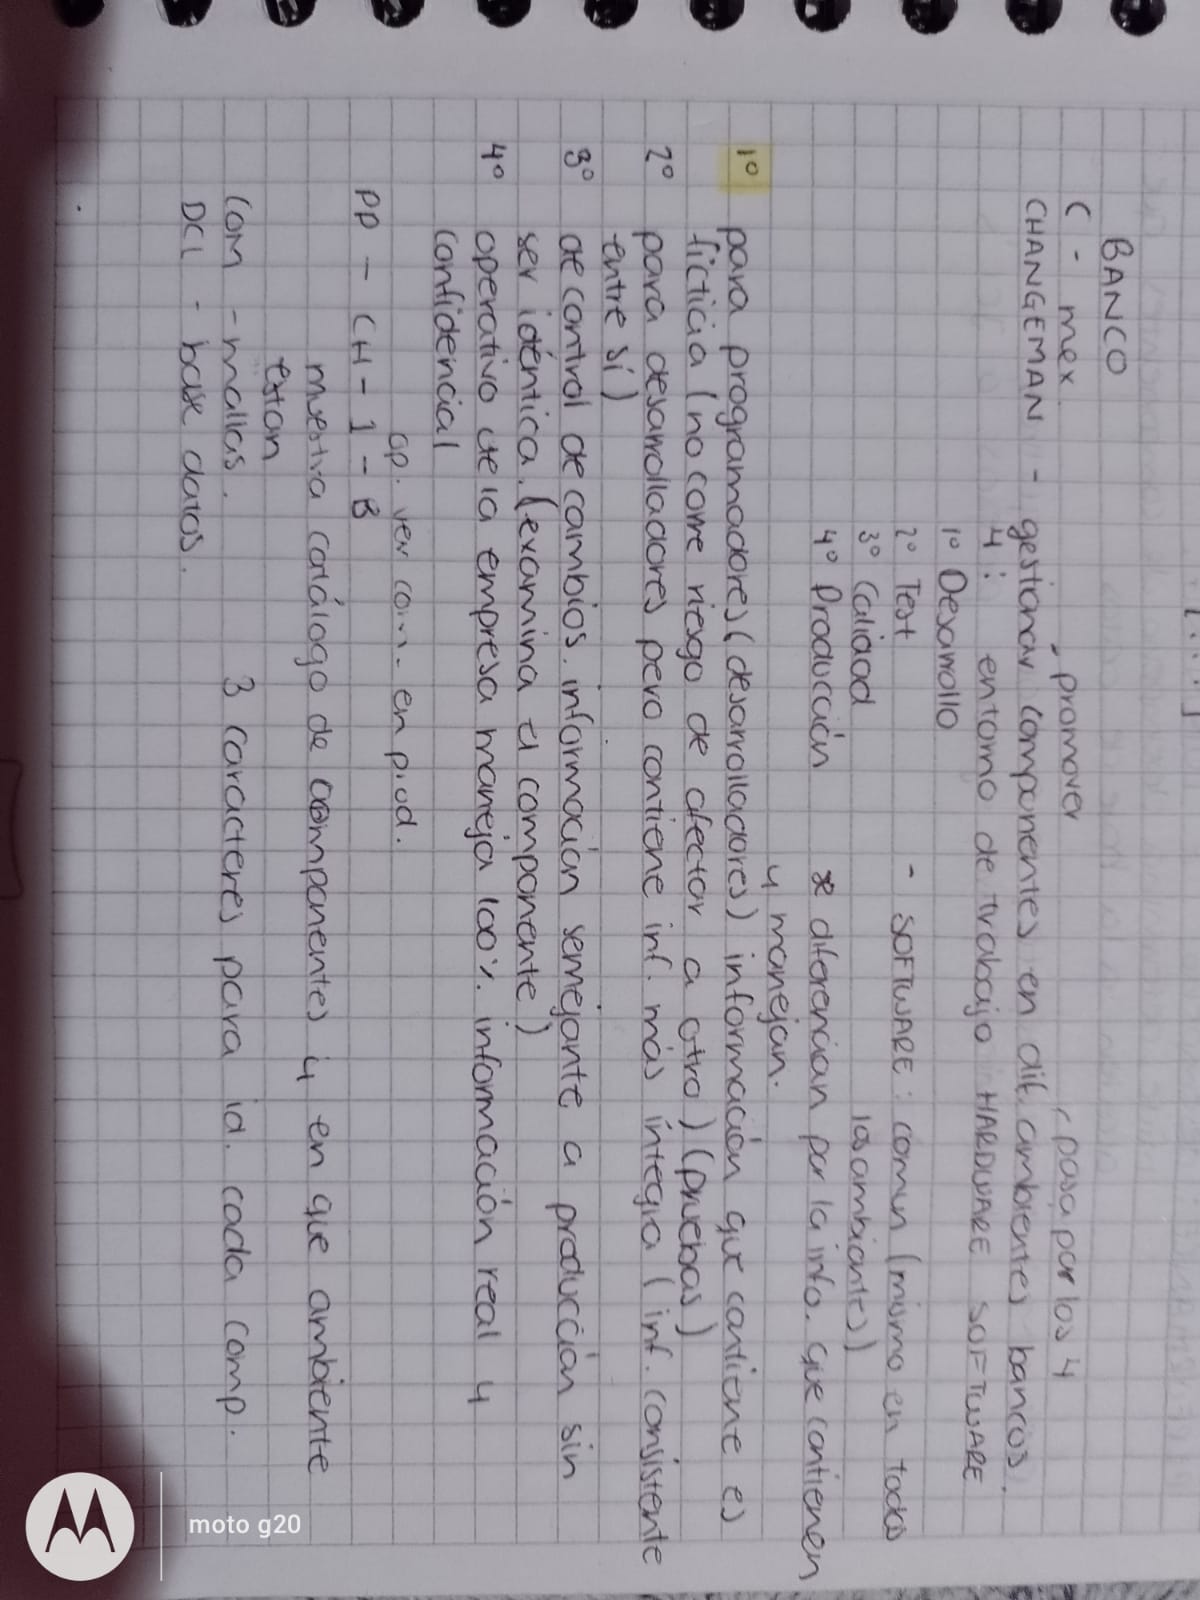 BANCO
C - mex.
- promover
, pasa por los 4
CHANGEMAN - gestionar componentes en dif. ambientes bancos.
4: entorno de trabajo HARDWARE SOFTWARE
1º Desarrollo
2º Test
- SOFTWARE: comun (mismo en todos
los ambientes)
3º Calidad
4º Producción
* diferencian por la info. que contienen
y manejan.
1º para programadores (desarrolladores) información que contiene es
ficticia (no corre riesgo de afectar a otro) (pruebas)
2º para desarrolladores pero contiene inf. más integra (inf. consistente
entre sí)
3º de control de cambios. información semejante a producción sin
ser idéntica. (examina el componente)
4º operativo de la empresa maneja 100%. información real y
confidencial
op. ver com. en prod.
PD - CH - 1 - B
muestra catálogo de componentes y en que ambiente
estan
COM - mallas.
3 caracteres para id. cada comp.
DCL - base datos.
moto g20